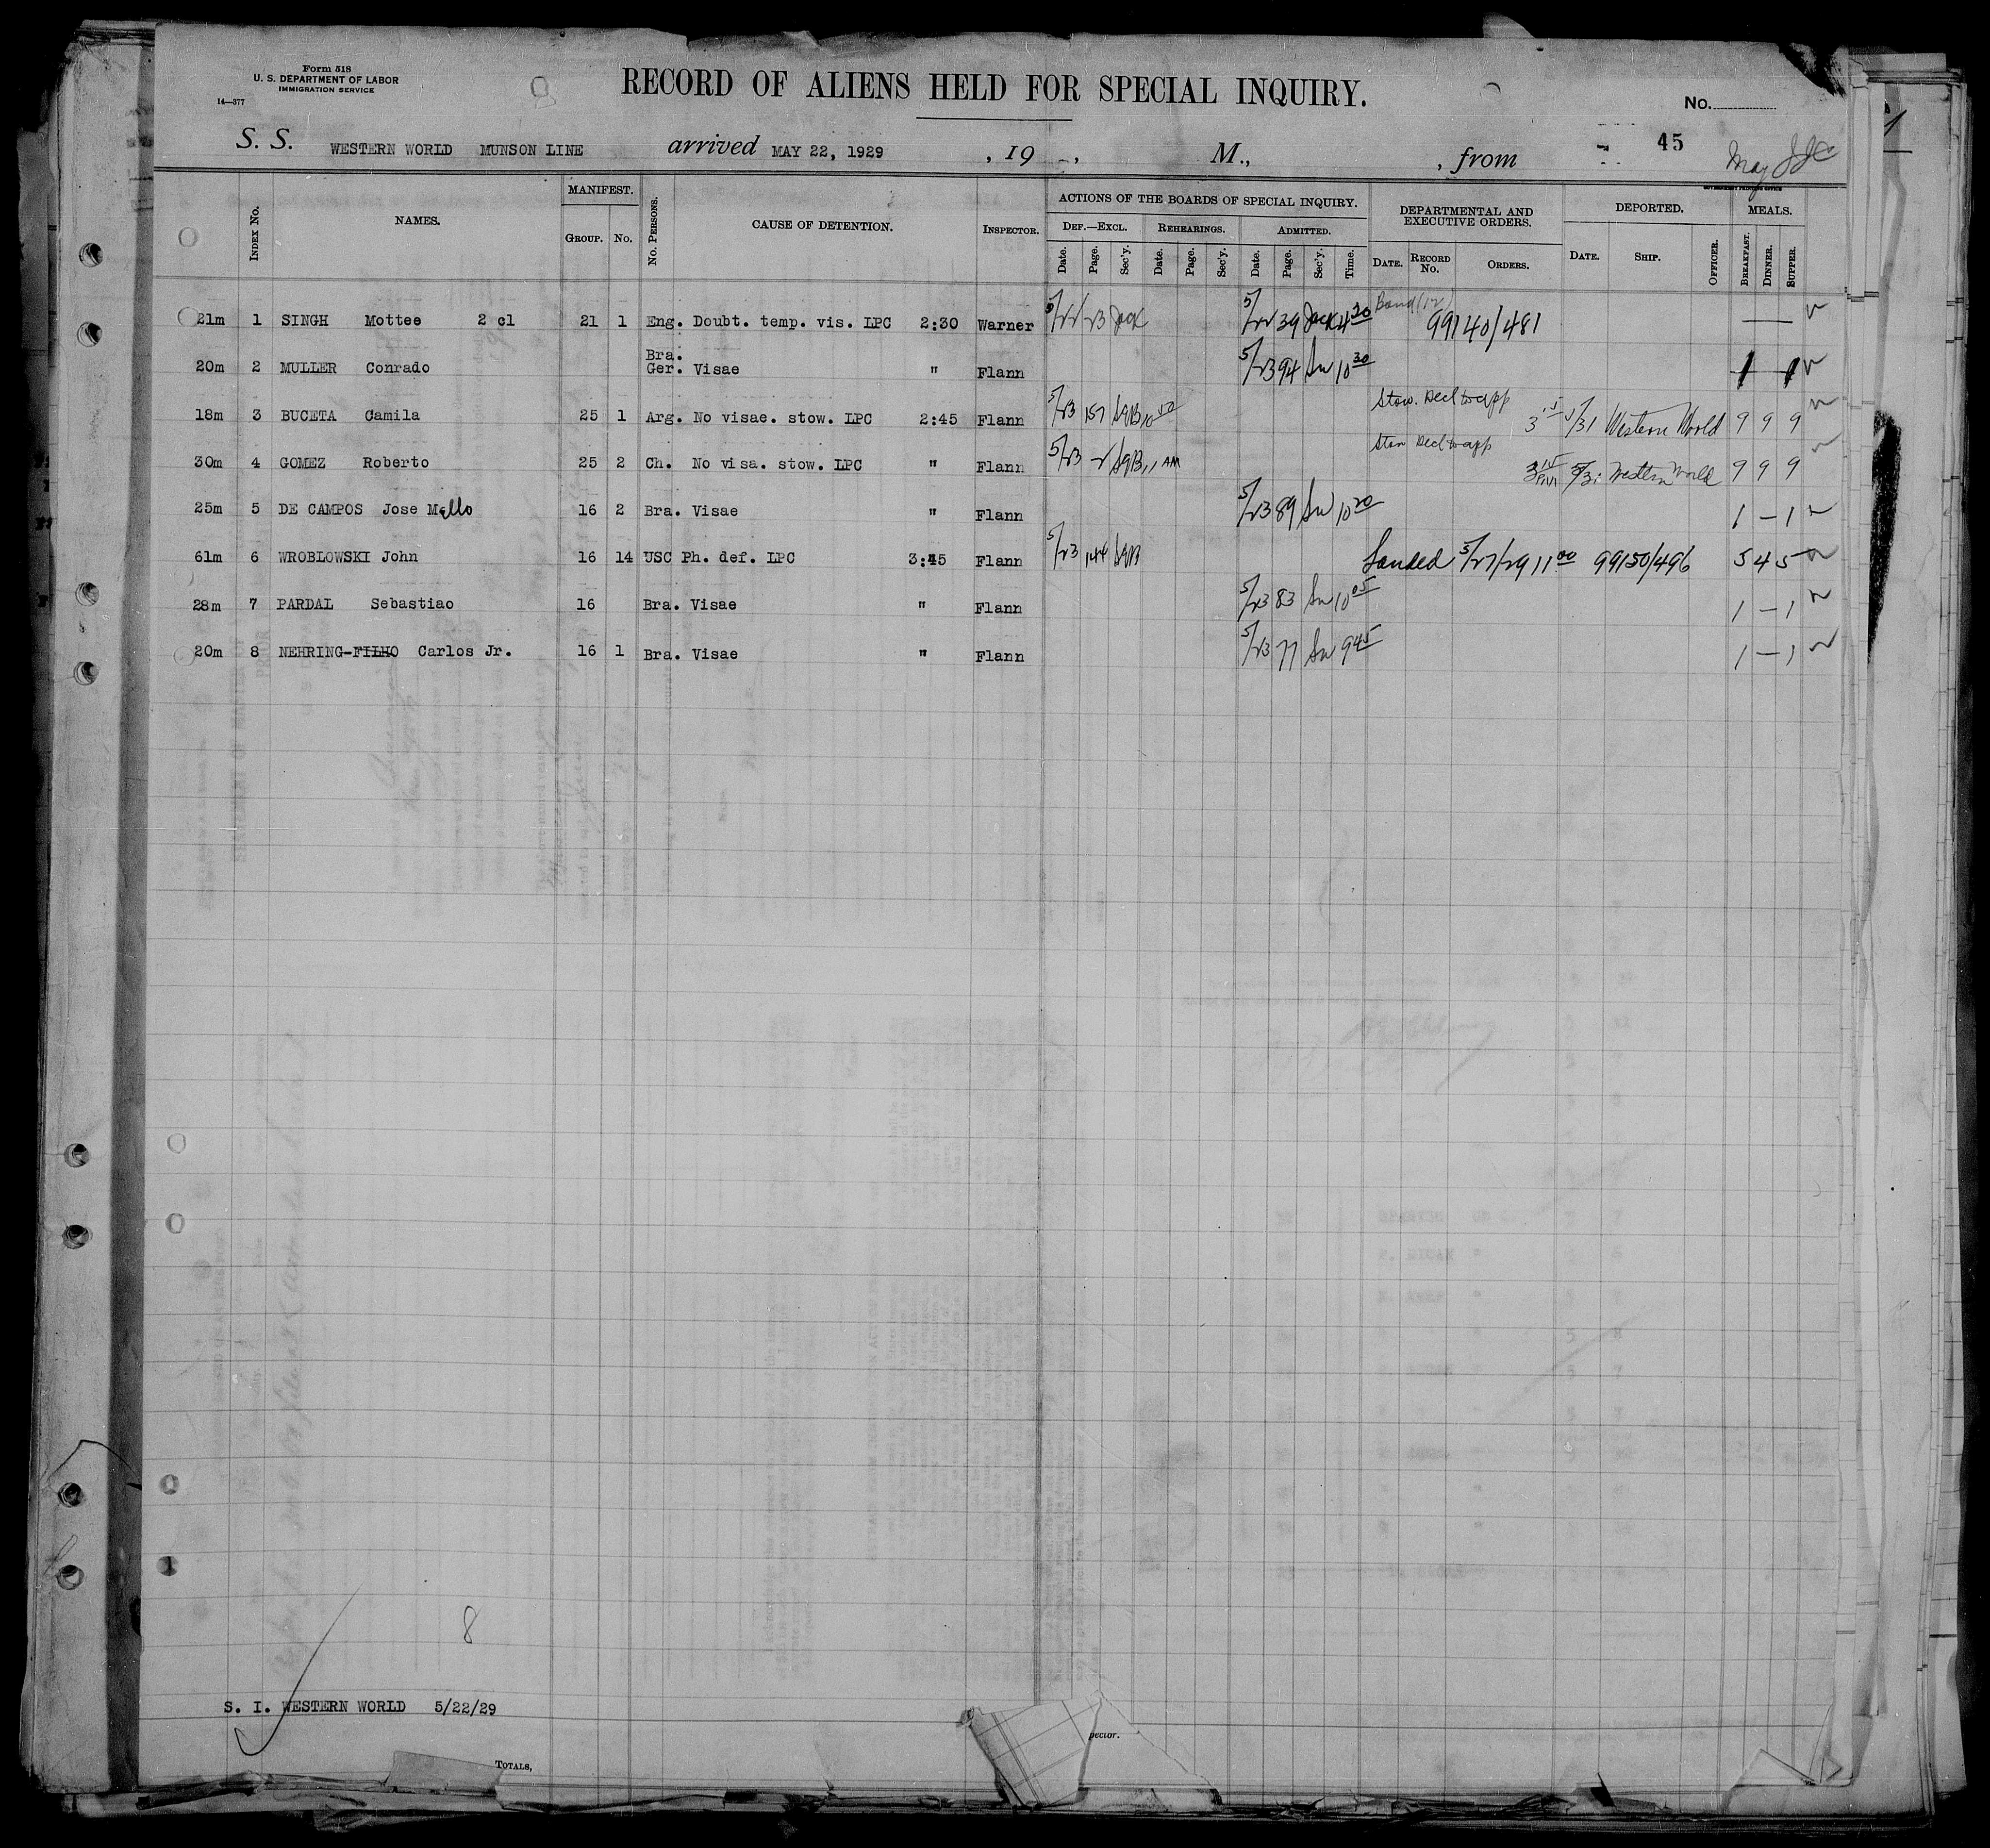 Form 518
U. S. DEPARTMENT OF LABOR
IMMIGRATION SERVICE
14—377
RECORD OF ALIENS HELD FOR SPECIAL INQUIRY.
No.
S. S. WESTERN WORLD MUNSON LINE arrived MAY 22, 1929 , 19 , M., , from 45
May
GOVERNMENT PRINTING OFFICE
INDEX No.
NAMES.
MANIFEST.
GROUP. No.
No. PERSONS.
CAUSE OF DETENTION.
INSPECTOR.
ACTIONS OF THE BOARDS OF SPECIAL INQUIRY.
DEF.—EXCL. REHEARINGS. ADMITTED.
Date. Page. Sec'y. Date. Page. Sec'y. Date. Page. Sec'y. Time.
DEPARTMENTAL AND EXECUTIVE ORDERS.
DATE. RECORD No. ORDERS.
DEPORTED.
DATE. SHIP. OFFICER.
MEALS.
BREAKFAST. DINNER. SUPPER.
21m 1 SINGH Mottee 2 cl 21 1 Eng. Doubt. temp. vis. LPC 2:30 Warner 5/22 23 Jack 5/22 39 Jack 4 30 Bond (12) 99140/481 —
Bra.
20m 2 MULLER Conrado Ger. Visae " Flann 5/23 94 Sw 10 30 1 — 1
18m 3 BUCETA Camila 25 1 Arg. No visae. stow. LPC 2:45 Flann 5/23 157 SgB 10 50 Stow. Decl to app 3 15 5/31 Western World 9 9 9
30m 4 GOMEZ Roberto 25 2 Ch. No visa. stow. LPC " Flann 5/23 2 SgB 11 AM Stow Decl to app 3 15 5/31 Western World 9 9 9
25m 5 DE CAMPOS Jose Mello 16 2 Bra. Visae " Flann 5/23 89 Sw 10 20 1 — 1
61m 6 WROBLOWSKI John 16 14 USC Ph. def. LPC 3:45 Flann 5/23 144 SgB Landed 5/27/29 11 00 99150/496 5 4 5
28m 7 PARDAL Sebastiao 16 Bra. Visae " Flann 5/23 83 Sw 10 05 1 — 1
20m 8 NEHRING-FILHO Carlos Jr. 16 1 Bra. Visae " Flann 5/23 77 Sw 9 45 1 — 1
8
S. I. WESTERN WORLD 5/22/29
pector.
TOTALS,